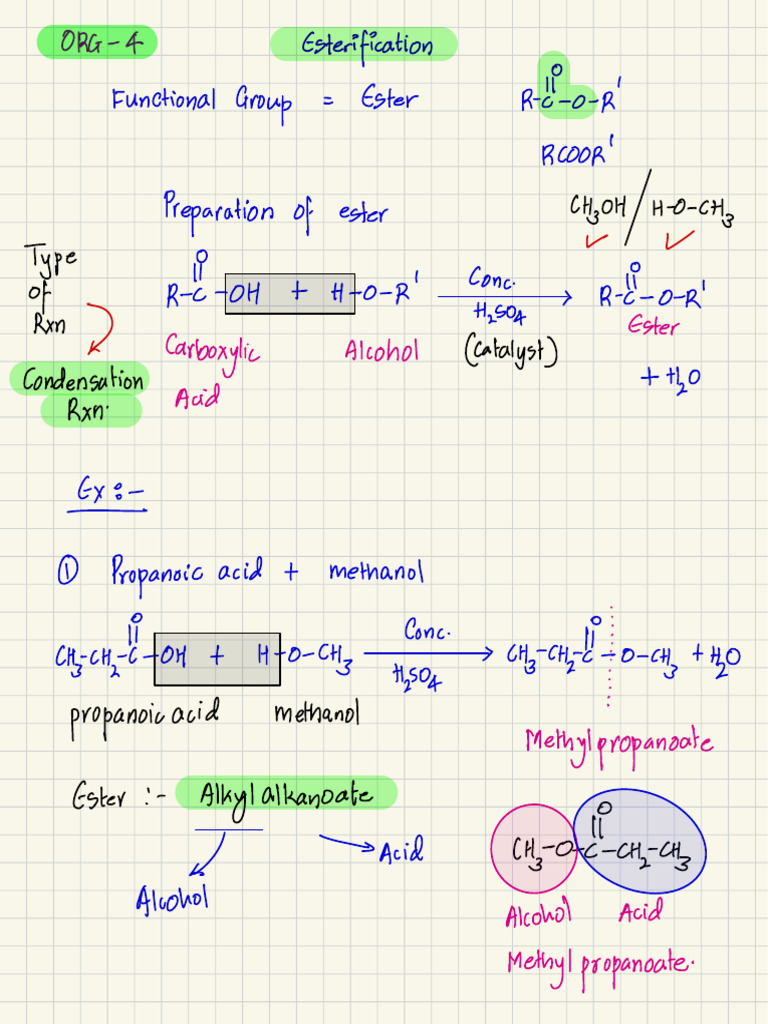 ORG-4
Esterification
Functional Group = Ester
O
R-C-O-R'
RCOOR'
Preparation of ester
CH3OH / H-O-CH3
Type
of
Rxn
Condensation
Rxn.
O
R-C-OH + H-O-R'
Conc.
H2SO4
(catalyst)
O
R-C-O-R'
Carboxylic
Acid
Alcohol
Ester
+ H2O
Ex :-
① Propanoic acid + methanol
O
CH3-CH2-C-OH + H-O-CH3
Conc.
H2SO4
O
CH3-CH2-C-O-CH3 + H2O
propanoic acid
methanol
Methyl propanoate
Ester :- Alkyl alkanoate
Alcohol
Acid
O
CH3-O-C-CH2-CH3
Alcohol
Acid
Methyl propanoate.